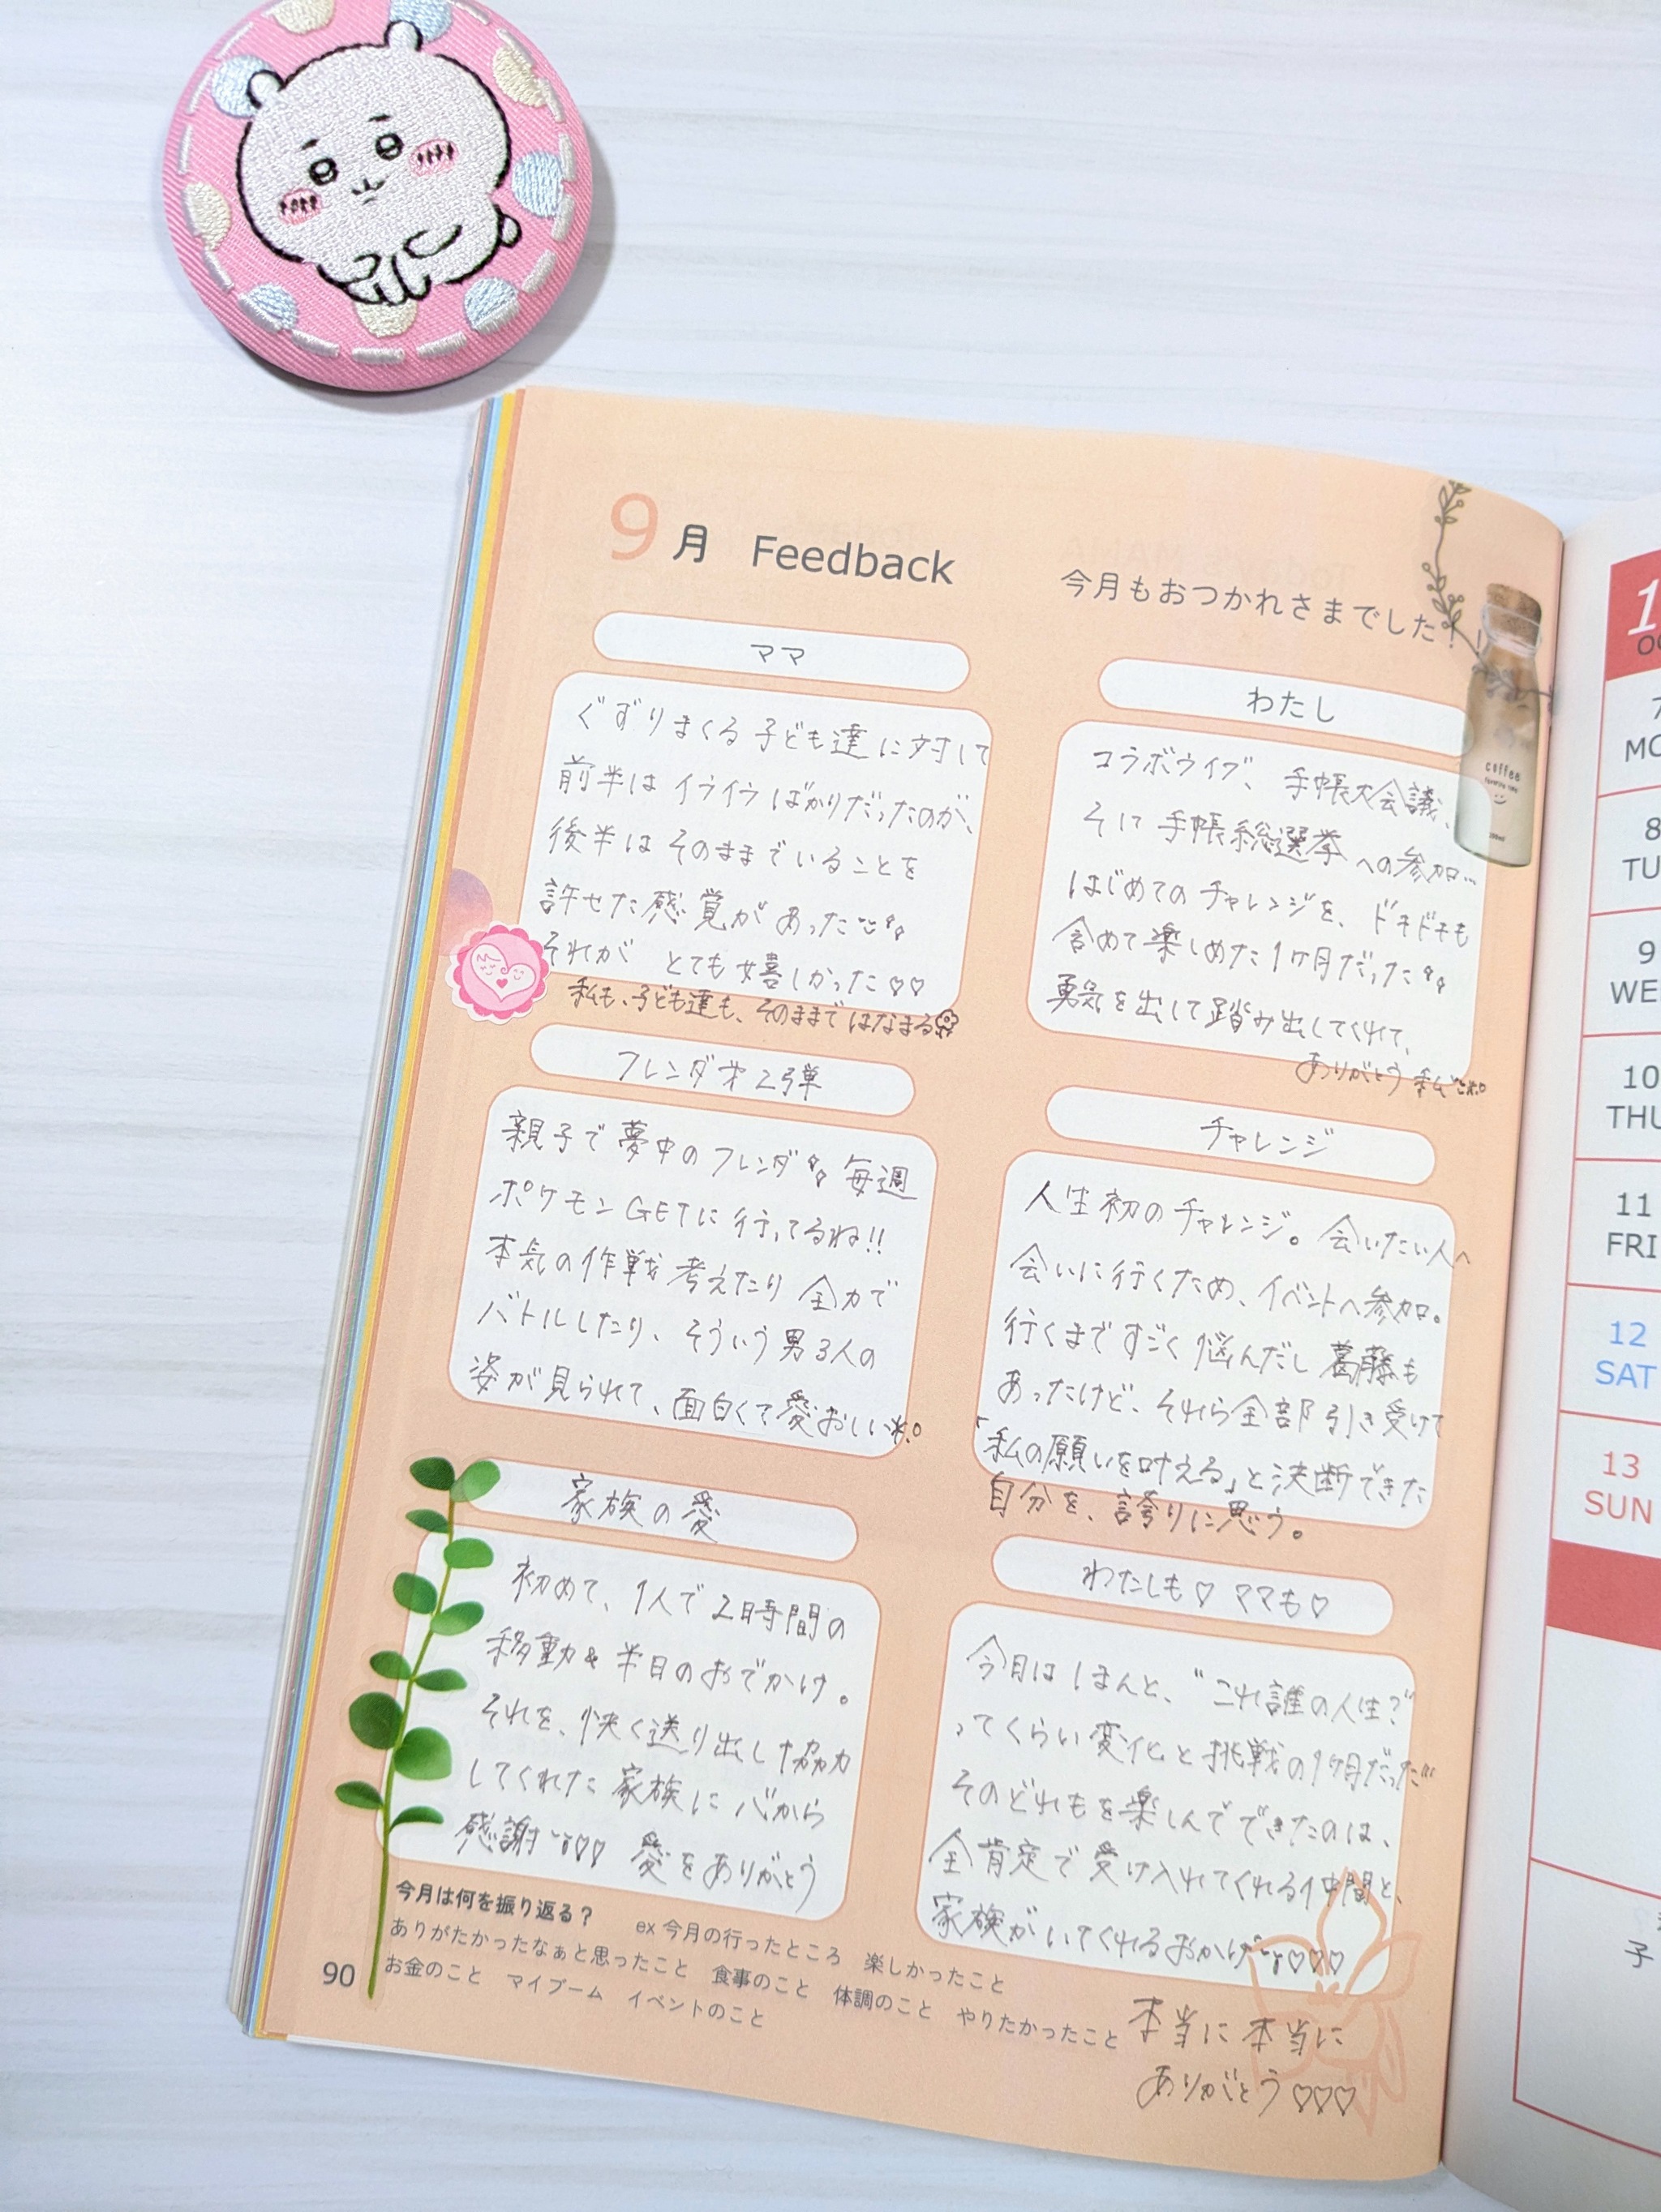 9月 Feedback
今月もおつかれさまでした!
ママ
ぐずりまくる子ども達に対して
前半はイライラばかりだったのが、
後半はそのままでいることを
許せた感覚があった
それがとても嬉しかった♡♡
私も、子ども達も、そのままではなまる
わたし
コラボライブ、手帳大会議、
そして手帳総選挙への参加…
はじめてのチャレンジを、ドキドキも
含めて楽しめた1ヶ月だった
勇気を出して踏み出してくれて、
ありがとう私
フレンダ第2弾
親子で夢中のフレンダ 毎週
ポケモンGETに行ってるね!!
本気の作戦考えたり全力で
バトルしたり、そういう男3人の
姿が見られて、面白くて愛おしい
チャレンジ
人生初のチャレンジ。会いたい人へ
会いに行くため、イベントへ参加。
行くまですごく悩んだし葛藤も
あったけど、それら全部引き受けて
「私の願いを叶える」と決断できた
自分を、誇りに思う。
家族の愛
初めて、1人で2時間の
移動&半日のおでかけ。
それを、快く送り出し協力
してくれた家族に心から
感謝♡♡ 愛をありがとう
わたしも♡ ママも♡
今月はほんと、"これ誰の人生?"
ってくらい変化と挑戦の1ヶ月だった
そのどれもを楽しんでできたのは、
全肯定で受け入れてくれる仲間と、
家族がいてくれるおかげ♡♡♡
本当に本当に
ありがとう♡♡♡
今月は何を振り返る? ex 今月の行ったところ 楽しかったこと
ありがたかったなぁと思ったこと 食事のこと 体調のこと やりたかったこと
お金のこと マイブーム イベントのこと
90
coffee
1
7
MO
8
TU
9
WE
10
THU
11
FRI
12
SAT
13
SUN
子